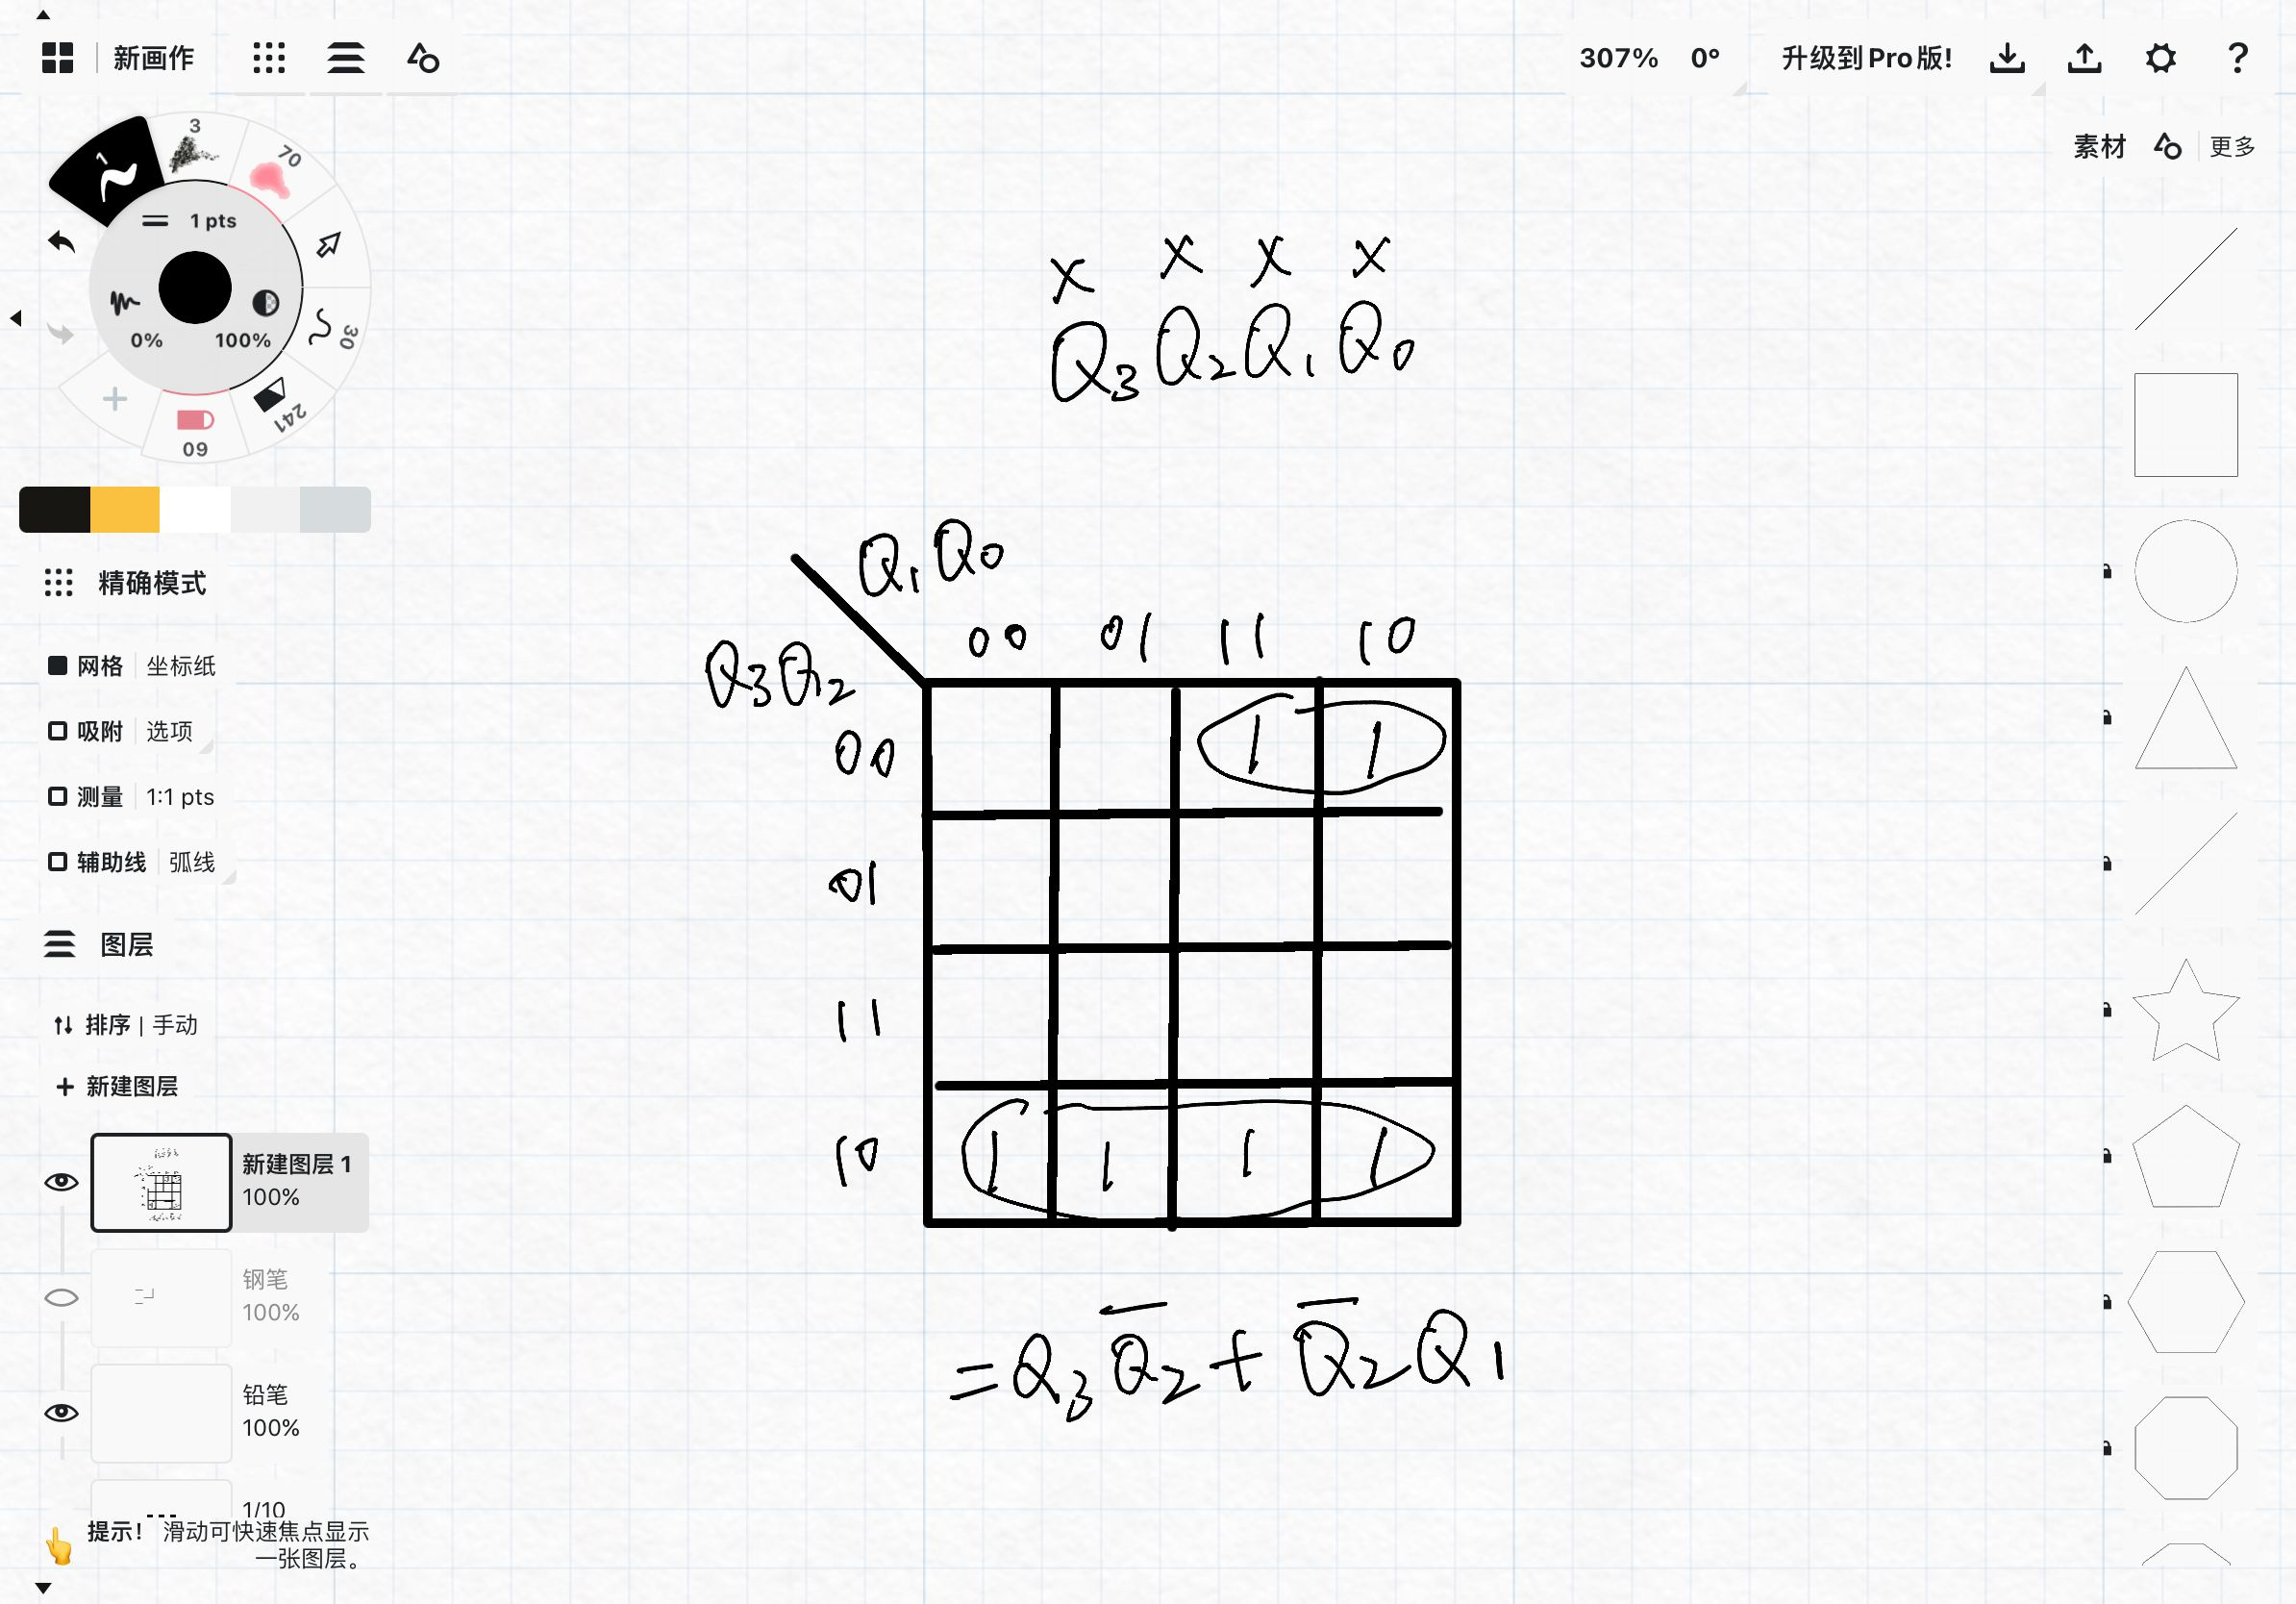 新画作
307% 0° 升级到Pro版! ?
素材 更多
1
3
70
1 pts
0% 100%
30
241
60
精确模式
网格 坐标纸
吸附 选项
测量 1:1 pts
辅助线 弧线
图层
排序 | 手动
+ 新建图层
新建图层 1
100%
钢笔
100%
铅笔
100%
1/10
提示! 滑动可快速焦点显示
一张图层。
x x x x
Q₃ Q₂ Q₁ Q₀
Q₁ Q₀
Q₃ Q₂
00 01 11 10
00 1 1
01
11
10 1 1 1 1
= Q₃ Q̅₂ + Q̅₂ Q₁